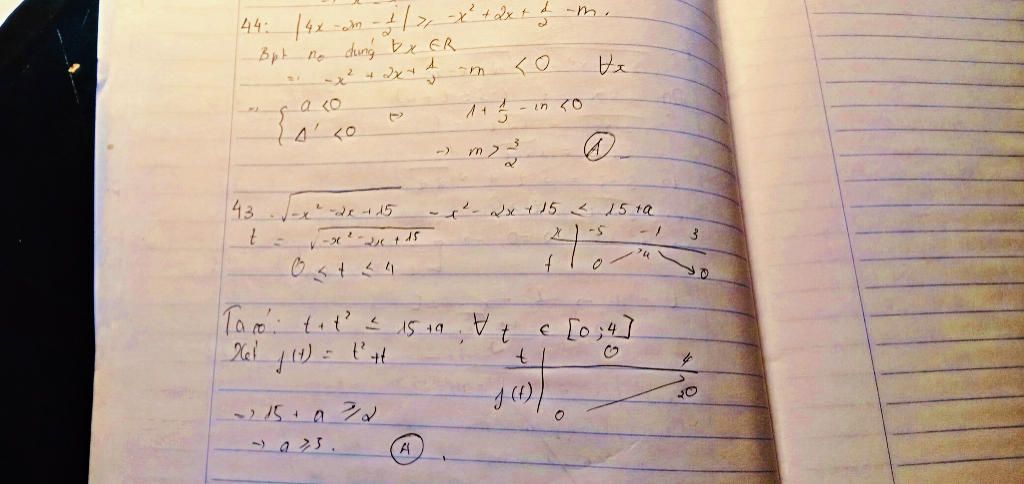 44: |4x - 2m - 1/2| ≥ -x² + 2x + 1/2 - m.
Bpt no đúng ∀x ∈ R
-x² + 2x + 1/2 - m < 0 ∀x
{ a < 0
Δ' < 0 ⇔ 1 + 1/2 - m < 0
→ m > 3/2 (A)
43. √(-x² - 2x + 15) - x² - 2x + 15 ≤ 15 + a
t = √(-x² - 2x + 15) x | -5 -1 3
0 ≤ t ≤ 4 t | 0 4 0
Ta có: t + t² ≤ 15 + a, ∀ t ∈ [0; 4]
Xét f(t) = t² + t t | 0 4
f(t) | 0 20
→ 15 + a ≥ 2
→ a ≥ 5. (A).